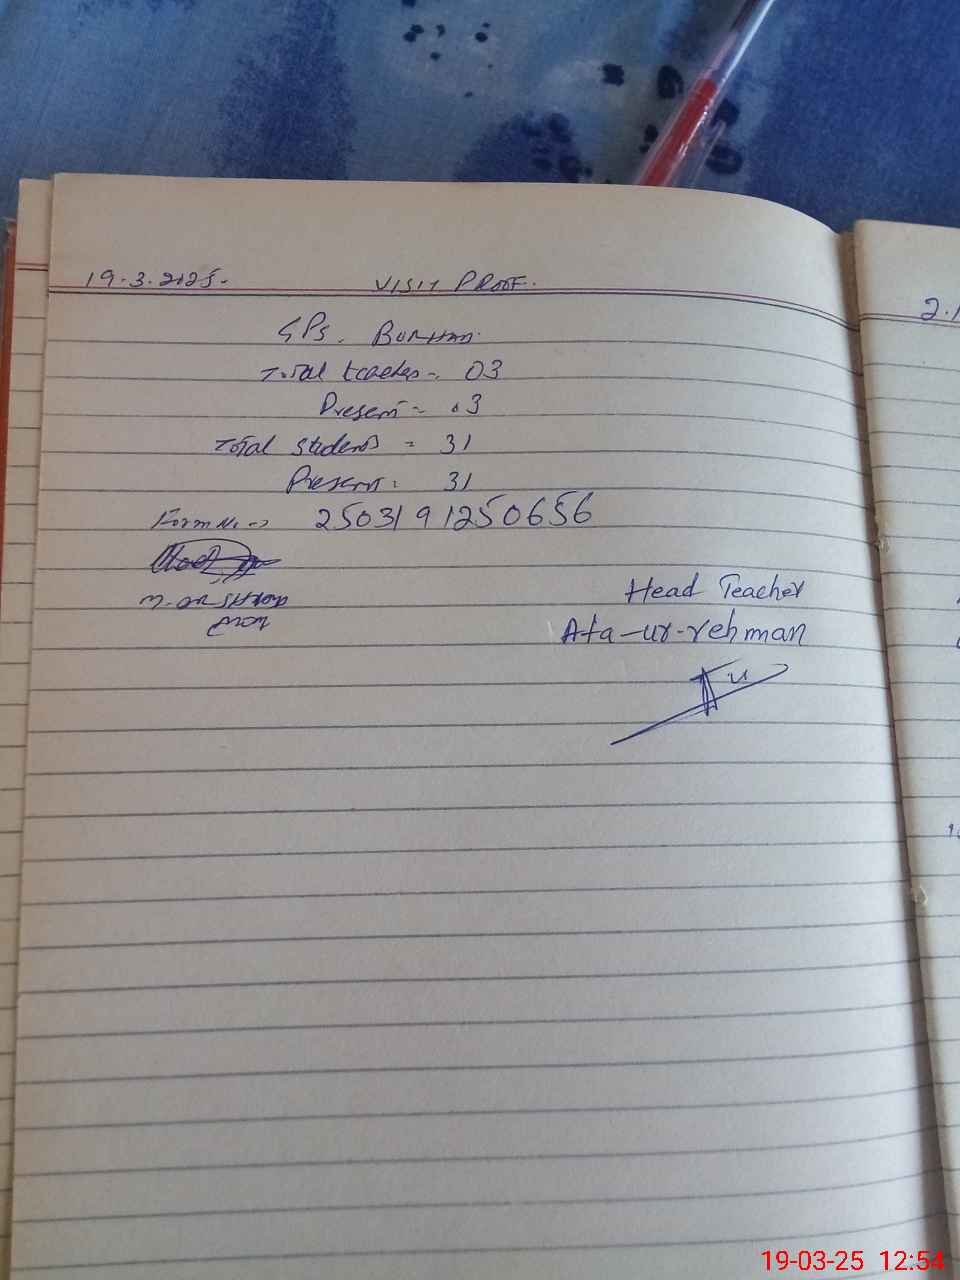 19.3.2025. VISIT PROOF.
GPS. Burhan.
Total teaches = 03
Present = 03
Total students = 31
Present = 31
Form No. → 2503191250656
Head Teacher
Ata-ur-rehman
2.1
19-03-25 12:54